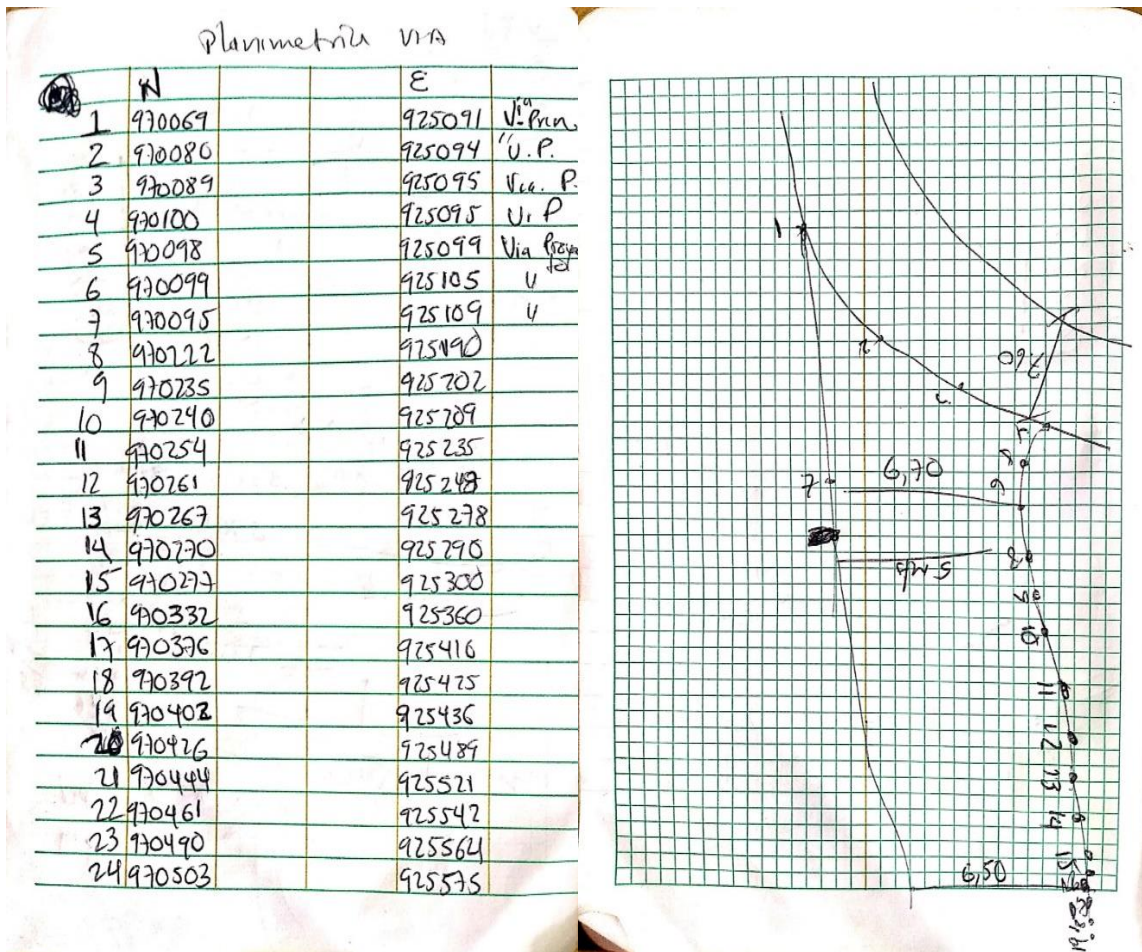 Planimetria VIA
N E
1 970069 925091 Via Prin.
2 970080 925094 " V.P.
3 970089 925095 Via. P.
4 970100 925095 V. P
5 970098 925099 Via
6 970099 925105 "
7 970095 925109 "
8 970222 925190
9 970235 925202
10 970240 925209
11 970254 925235
12 970261 925248
13 970267 925278
14 970270 925290
15 970277 925300
16 970332 925360
17 970376 925416
18 970392 925425
19 970402 925436
20 970426 925489
21 970444 925521
22 970461 925542
23 970490 925564
24 970503 925575
1
2
7.60
7
6,70
6
5 mts
8
9
10
11
12
13
14
15
6,50